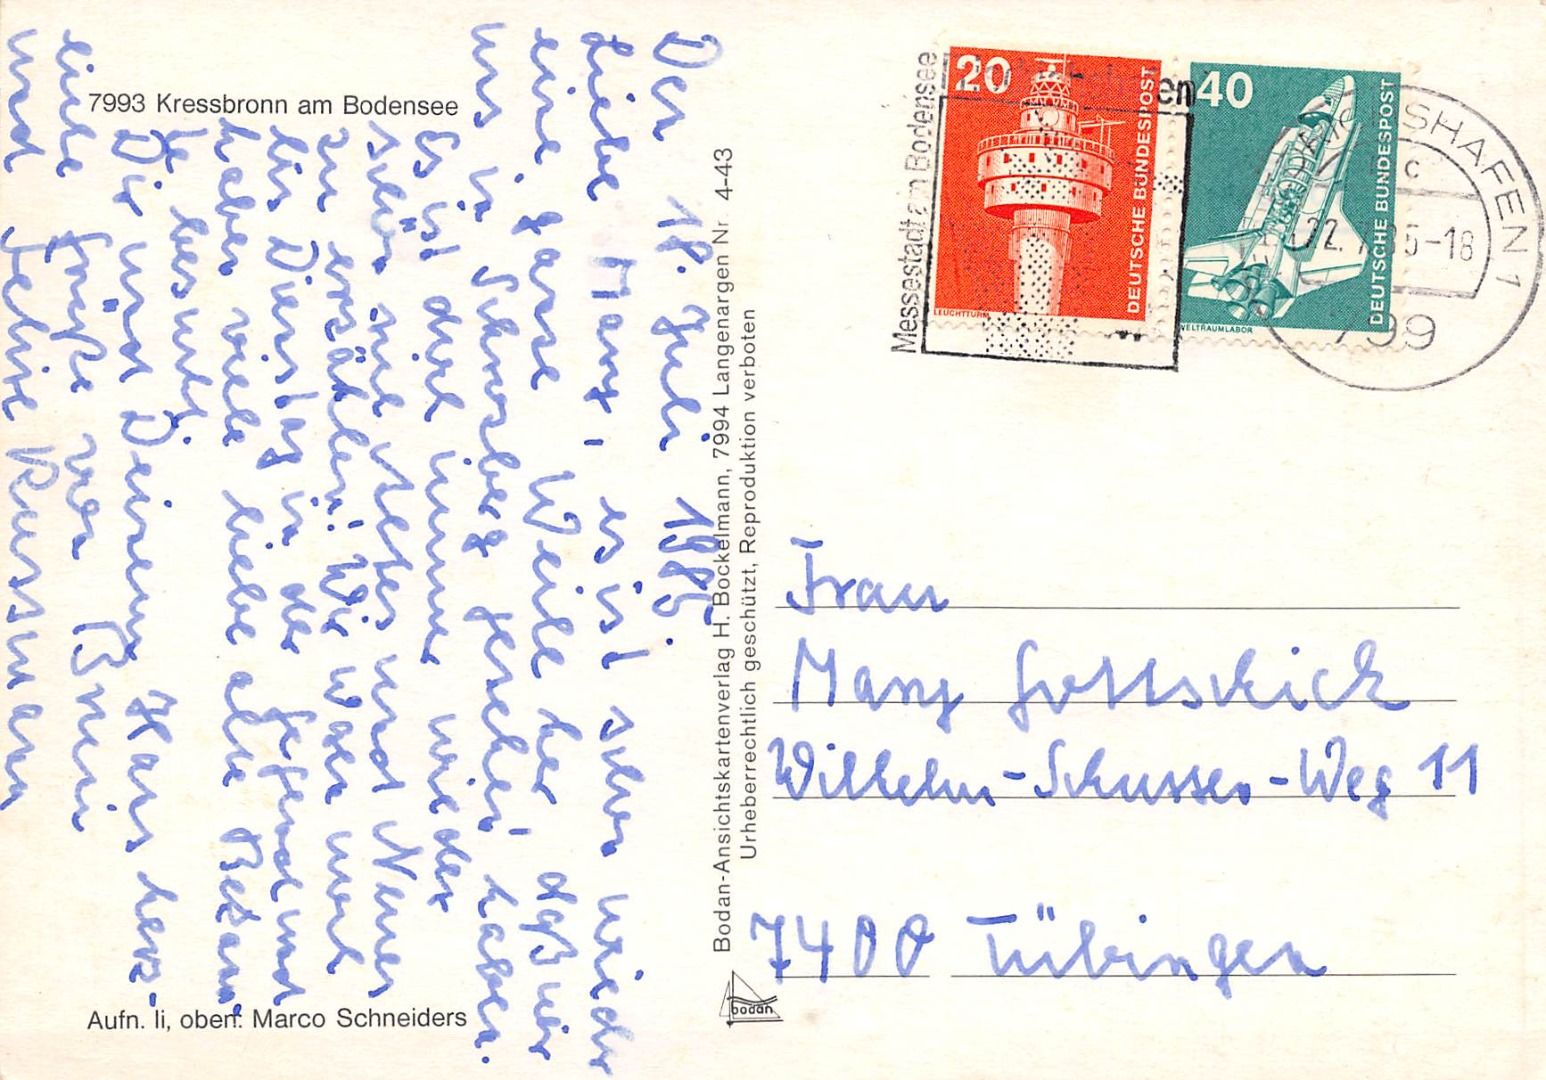 7993 Kressbronn am Bodensee
Den 18. Juli 1985.
Liebe Mary, es ist schon wieder
eine ganze Weile her daß wir
uns in Schnosberg gesehen haben.
Es ist dort immer wieder
schön mit und Neues
zu erzählen! Wir waren noch
bis Dienstag in der Gegend und
haben viele liebe alte Bekann-
te besucht.
Dir und Deinem Hans herz-
liche Grüße von
und Feline Kussmann
Aufn. li, oben: Marco Schneiders
Bodan-Ansichtskartenverlag H. Bockelmann, 7994 Langenargen Nr. 4-43
Urheberrechtlich geschützt, Reproduktion verboten
bodan
Messestadt am Bodensee
20
DEUTSCHE BUNDESPOST
LEUCHTTURM
en
40
DEUTSCHE BUNDESPOST
WELTRAUMLABOR
SHAFEN 1
c
22. 7. 85-18
799
Frau
Mary Gottschick
Wilhelm-Schussen-Weg 11
7400 Tübingen